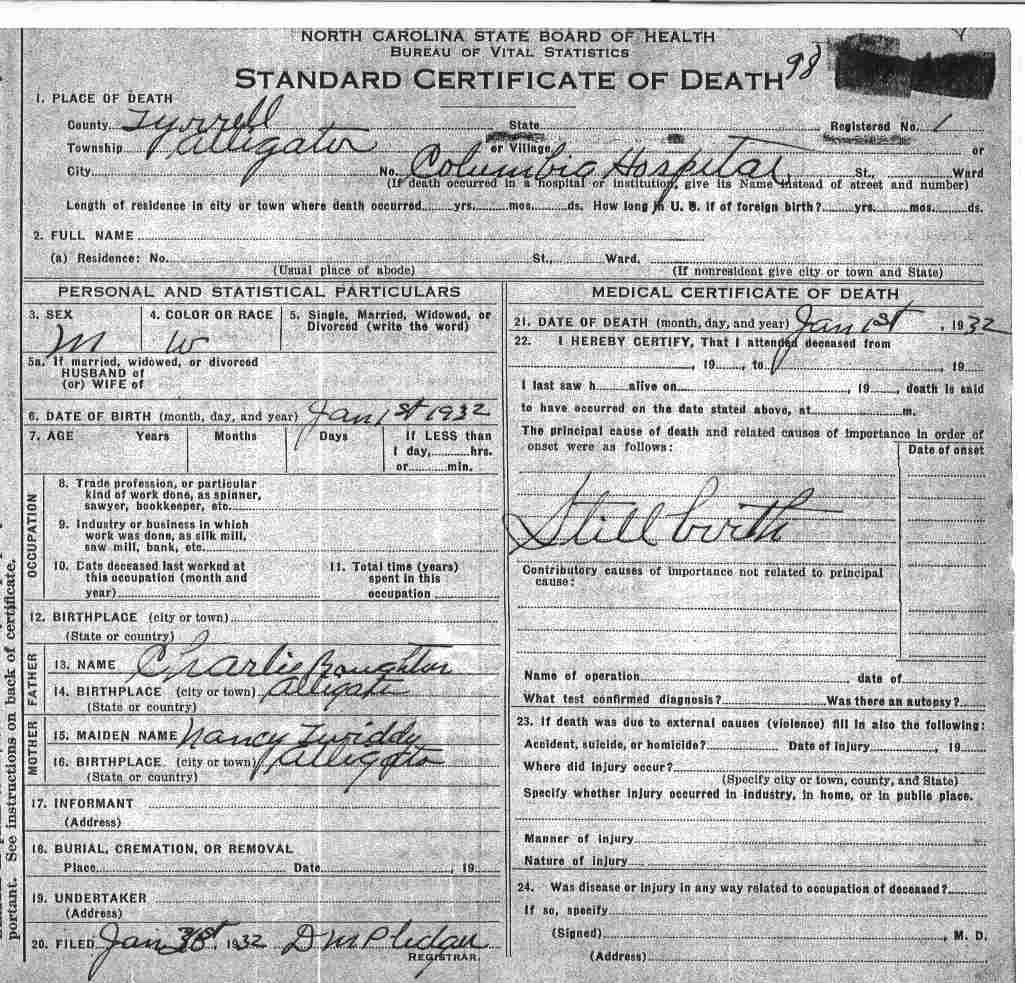 NORTH CAROLINA STATE BOARD OF HEALTH
BUREAU OF VITAL STATISTICS
STANDARD CERTIFICATE OF DEATH 98
1. PLACE OF DEATH
County Tyrrell State Registered No. 1
Township Alligator or Village or
City No. Columbia Hospital St., Ward
(If death occurred in a hospital or institution, give its Name instead of street and number)
Length of residence in city or town where death occurred yrs. mos. ds. How long in U. S. if of foreign birth? yrs. mos. ds.
2. FULL NAME
(a) Residence: No. St., Ward,
(Usual place of abode) (If nonresident give city or town and State)
PERSONAL AND STATISTICAL PARTICULARS
3. SEX 4. COLOR OR RACE 5. Single, Married, Widowed, or
Divorced (write the word)
M W
5a. If married, widowed, or divorced
HUSBAND of
(or) WIFE of
6. DATE OF BIRTH (month, day, and year) Jan 1st 1932
7. AGE Years Months Days If LESS than
1 day, hrs.
or min.
OCCUPATION
8. Trade profession, or particular
kind of work done, as spinner,
sawyer, bookkeeper, etc.
9. Industry or business in which
work was done, as silk mill,
saw mill, bank, etc.
10. Date deceased last worked at
this occupation (month and
year)
11. Total time (years)
spent in this
occupation
12. BIRTHPLACE (city or town)
(State or country)
FATHER
13. NAME Charlie Boughton
14. BIRTHPLACE (city or town) Alligator
(State or country)
MOTHER
15. MAIDEN NAME Nancy Twiddy
16. BIRTHPLACE (city or town) Alligator
(State or country)
17. INFORMANT
(Address)
18. BURIAL, CREMATION, OR REMOVAL
Place Date , 19
19. UNDERTAKER
(Address)
20. FILED Jan , 1932
REGISTRAR.
MEDICAL CERTIFICATE OF DEATH
21. DATE OF DEATH (month, day, and year) Jan 1st , 1932
22. I HEREBY CERTIFY, That I attended deceased from
, 19 , to , 19
I last saw h alive on , 19 , death is said
to have occurred on the date stated above, at m.
The principal cause of death and related causes of importance in order of
onset were as follows: Date of onset
Still birth
Contributory causes of importance not related to principal
cause:
Name of operation date of
What test confirmed diagnosis? Was there an autopsy?
23. If death was due to external causes (violence) fill in also the following:
Accident, suicide, or homicide? Date of injury , 19
Where did injury occur?
(Specify city or town, county, and State)
Specify whether injury occurred in industry, in home, or in public place.
Manner of injury
Nature of injury
24. Was disease or injury in any way related to occupation of deceased?
If so, specify
(Signed) , M. D.
(Address)
portant. See instructions on back of certificate.